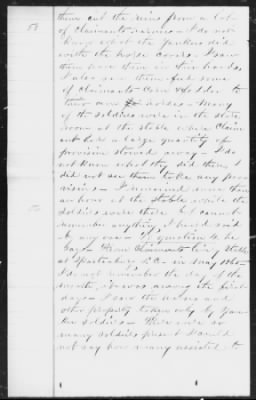 58
them cut the reins from a lot
of Claimants harness – I do not
know what the yankees did
with the horses Cords. I saw
them have them in their hands.
I also saw them feed some
of Claimants Corn & fodder to
their own horses – Many
of the soldiers were in the store
room at the stable where Claim
ant had a large quantity of
provision stored away – I do
not know what they did there, I
did not see them take any pro
visions – I remained more than
an hour at the Stable while the
soldiers were there but cannot
remember anything I heard said
by any one – To question 4 he
Says – From Claimants livery Stable
at Spartanburg S.C. in May 1865 –
I do not remember the day of the
month, it was among the first
days – I saw the horses and
other property taken only by yan
kee soldiers – There were so
many soldiers present I could
not say how many assisted to